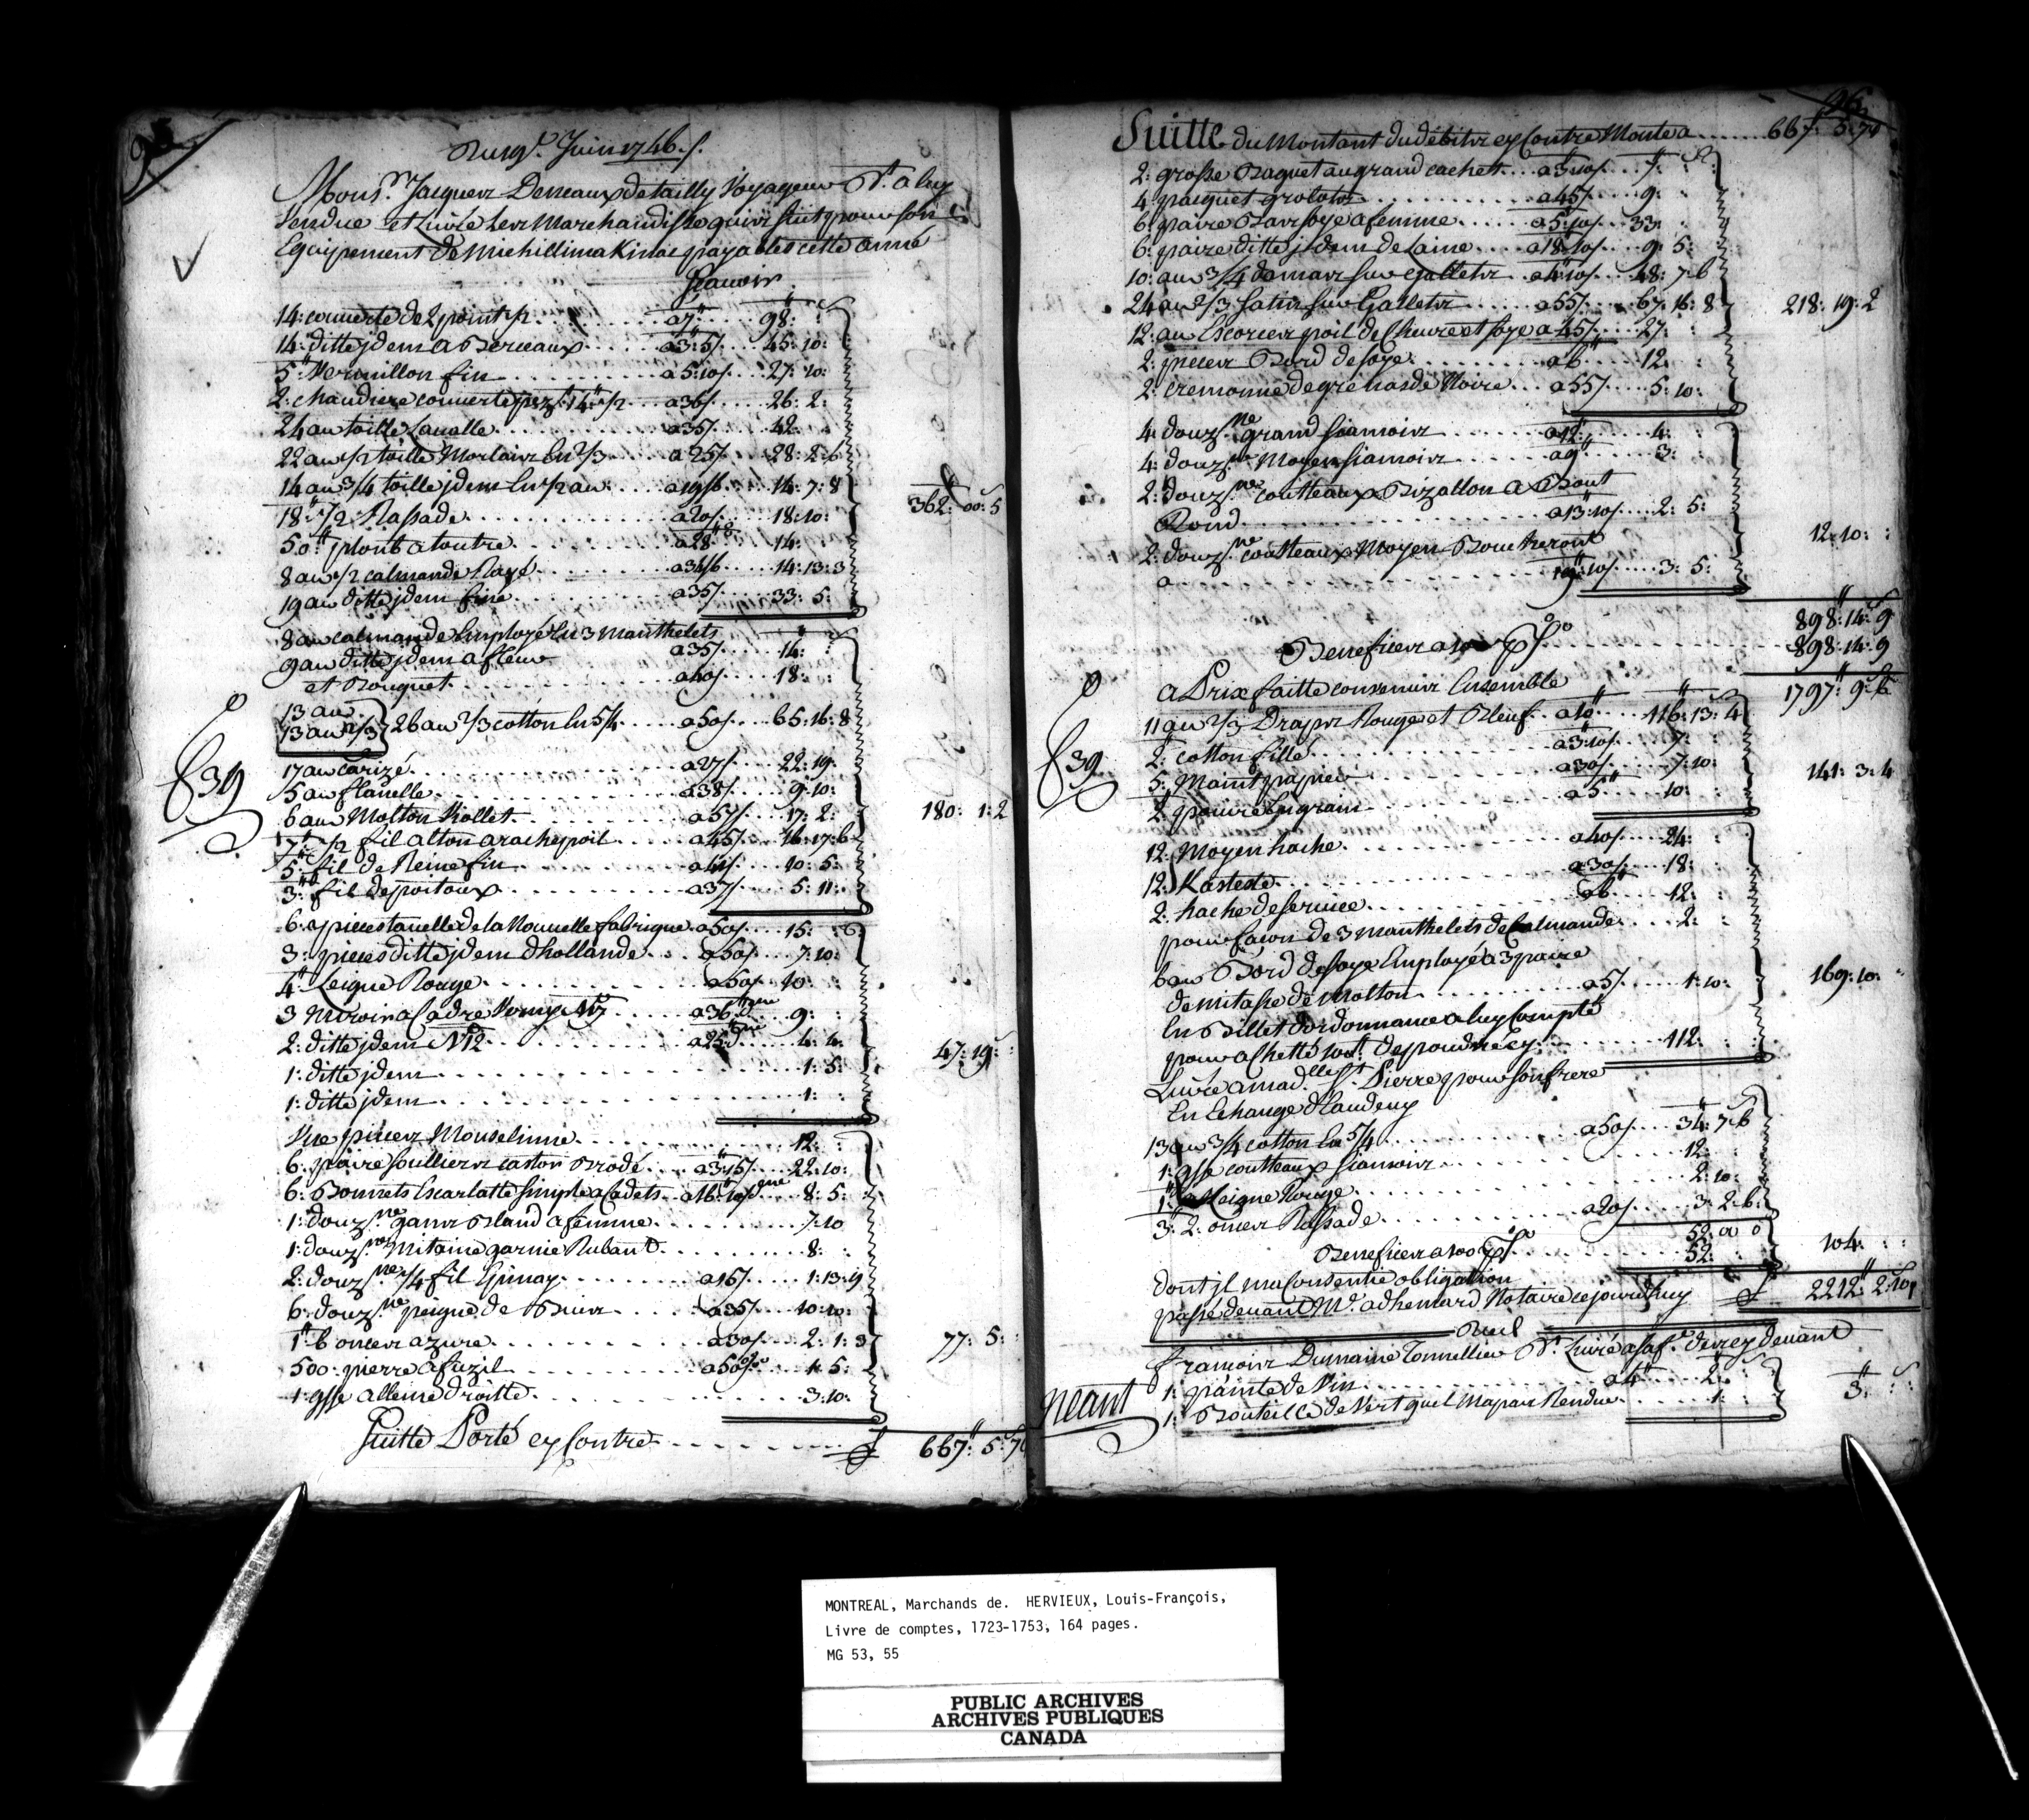 95
Du 19e. Juin 1746./.
Monsr. Jacques Deneaux detailly Voyageur Dt. a luy
Vendue et Livré Les Marchandises qui suit pour son
Equipement de Michillimakinac payables cette anné
Scauoir
14: couuerte de 2 points 1/2 a 7" 98: :
14: ditte jdem a Berceaux a 3:5/. 45:10:
5" Vermillon fin a 5:10/. 27:10:
2: chaudiere couuerte pezt. 14" 1/2 a 36/. 26:2:
24 au toille Laualle a 35/. 42: :
22 au 1/2 toille Morlaix En 2/3 a 25/. 28:2:6
14 au 3/4 toille jdem En 1/2 au a 19/6 14:7:8
18" 1/2 Rassade a 20/. 18:10:
362: 00: 5
50" plomb a loutre a 28" 14:
8 au 1/2 calmande Rayé a 34/6 14:13:3
19 au ditte jdem fine a 35/. 33:5:
8 au calmande Employé En 3 Manthelets a 35/. 14: :
9 au ditte jdem a fleur
et Bouquet a 40/. 18: :
13 au
13 au 2/3 26 au 2/3 cotton En 5/4 a 50/. 65:16:8
f 39
17 au Carizé a 27/. 22:19:
5 au flanelle a 38/. 9:10:
6 au Molton Mollet a 57/. 17:2:
180: 1:2
7" 1/2 fil a lton arachepoil a 45/. 16:17:6
5" fil de Reine fin a 41/. 10:5:
3" fil de poitoux a 37/. 5:11:
6: pieces tauelle de la Nouuelle fabrique a 50/. 15: :
3: pieces ditte jdem dhollande a 50/. 7:10:
4" Leigne Rouge a 50/. 10: :
3 Miroir a Cadre Vernis a 36" dne 9: :
2: ditte jdem N12 a 25" dne 4:4:
47: 19:
1: ditte jdem 1:5:
1: ditte jdem 1: :
Vne pieces Mouselinne 12: :
6: paire soulliers castor Brodé a 3:15/. 22:10:
6: Bonnets Escarlatte simple a Cadets a 16" 10/. dne 8:5:
1: douzne. gans Bland a femme 7:10
1: douzne. Mitaine garnie Ruband 8: :
2: douzne. 1/4 fil Epinay a 15/. 1:13:9
6: douzne. peigne de Buis a 35/. 10:10:
1" 6 onces azure a 30/. 2:1:3
77: 5:
500: pierre a fuzil a 50/. % 1:5:
1: gsse alleine droitte 3:10:
Suitte Porté cy Contre £ 667" 5: 7d
96
Suitte du Montant du débiter cy Contre Monte a 667" 5: 7d
2: grosse Baguet au grand cachet a 3:10/. 7: :
4 paquet grolots a 45/. 9: :
6: paire Bas soye a femme a 5:10/. 33: :
6: paire ditte jdem de Laine a 18" 10/. 9:5:
10: au 3/4 damas sur Galletz a 4:10/. 48:7:6
24 au 2/3 Satin sur Galletz a 55/. 67:16:8
218: 19: 2
12: au Escorces poil de Cheure et soye a 45/. 27: :
2: pieces Bord de soye a 6" 12: :
2: cremonne de grenarde Noire a 55/. 5:10:
4: douzne. grand siamois a 12" 4: :
4: douzne. Moyen siamois a 9" 3: :
2: douzne. coutteaux Bizallon a Bout
Rond a 13:10/. 2:5:
2: douzne. coutteaux Moyen Boucheront
a 19" 10/. 3:5:
12: 10: :
898: 14: 9
Benefices a 100 p % 898: 14: 9
1797" 9: 6
a Prix faitte conuenuis Ensemble
11 au 2/3 Draps Rouge et Bleuf a 10" 116:13:4
2" cotton fillé a 3:10/. 7: :
f 39
5: Maint papier a 30/. 7:10:
141: 3: 4
2" poivre En grain a 5" 10: :
12: Moyen hache a 40/. 24: :
12: Kasteste a 30/. 18: :
2: hache de seruice a 6" 12: :
pour facon de 3 Manthelets de Calmande 2: :
6 au Bord de soye Employé a 3 paire
de mitasse de Molton a 5/. 1:10:
169: 10:
En Billet dordonnance a luy Compté
pour a chetté 100lt. de poudre cy 112: :
Livré a madlle St. Pierre pour son frere
En Echange Eaudeuy
13 au 3/4 cotton En 5/4 a 50/. 34:7:6
1: gsse coutteaux siamois 12: :
1" Leigne Rouge 2:10:
3" 2: onces Rassade a 20/. 3:2:6
52: 00 0
Benefices a 100 p % 52:
104: : :
dont jl ma Consentie obligation
passé deuant Mr. adhemard Notaire ce jourdhuy £ 2212" 2: 10d
Dud
francois Dumaine Tonnellier Dt. Livré a sa fe. ders cy deuant
neant
1: painte de Vin a 4" 2: :
1: Bouteille de Vert quil Ma pas Rendue 1: :
3" : :
MONTREAL, Marchands de. HERVIEUX, Louis-François,
Livre de comptes, 1723-1753, 164 pages.
MG 53, 55
PUBLIC ARCHIVES
ARCHIVES PUBLIQUES
CANADA